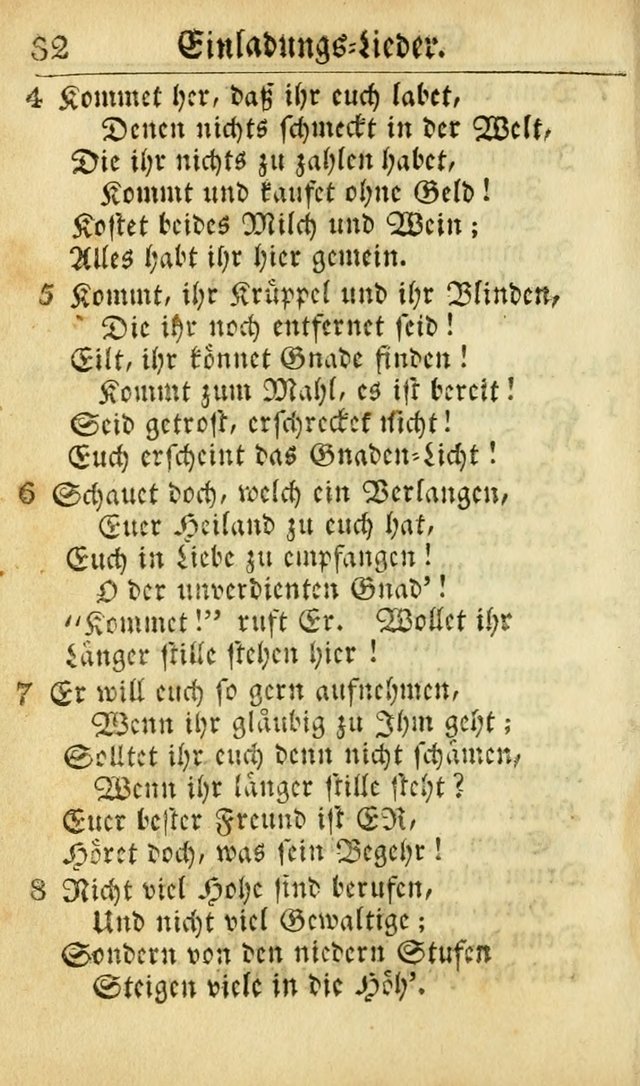 32 Einladungs=Lieder.
4 Kommet her, daß ihr euch labet,
Denen nichts schmeckt in der Welt,
Die ihr nichts zu zahlen habet,
Kommt und kaufet ohne Geld!
Kostet beides Milch und Wein;
Alles habt ihr hier gemein.
5 Kommt, ihr Krüppel und ihr Blinden,
Die ihr noch entfernet seid!
Eilt, ihr könnet Gnade finden!
Kommt zum Mahl, es ist bereit!
Seid getrost, erschrecket nicht!
Euch erscheint das Gnaden=Licht!
6 Schauet doch, welch ein Verlangen,
Euer Heiland zu euch hat,
Euch in Liebe zu empfangen!
O der unverdienten Gnad'!
"Kommet!" ruft Er. Wollet ihr
Länger stille stehen hier!
7 Er will euch so gern aufnehmen,
Wenn ihr gläubig zu Ihm geht;
Solltet ihr euch denn nicht schämen,
Wenn ihr länger stille steht?
Euer bester Freund ist ER,
Höret doch, was sein Begehr!
8 Nicht viel Hohe sind berufen,
Und nicht viel Gewaltige;
Sondern von den niedern Stufen
Steigen viele in die Höh'.